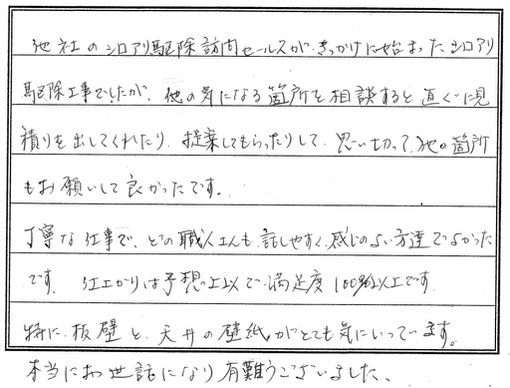 他社のシロアリ駆除訪問セールスがきっかけに始まったシロアリ
駆除工事でしたが、他の気になる箇所を相談すると直ぐに見
積りを出してくれたり、提案してもらったりして、思い切って他の箇所
もお願いして良かったです。
丁寧な仕事で、どの職人さんも、話しやすく、感じのよい方達でよかった
です。 仕上がりは予想以上で、満足度100%以上です。
特に、板壁と、天井の壁紙がとても気にいっています。
本当にお世話になり有難うございました、